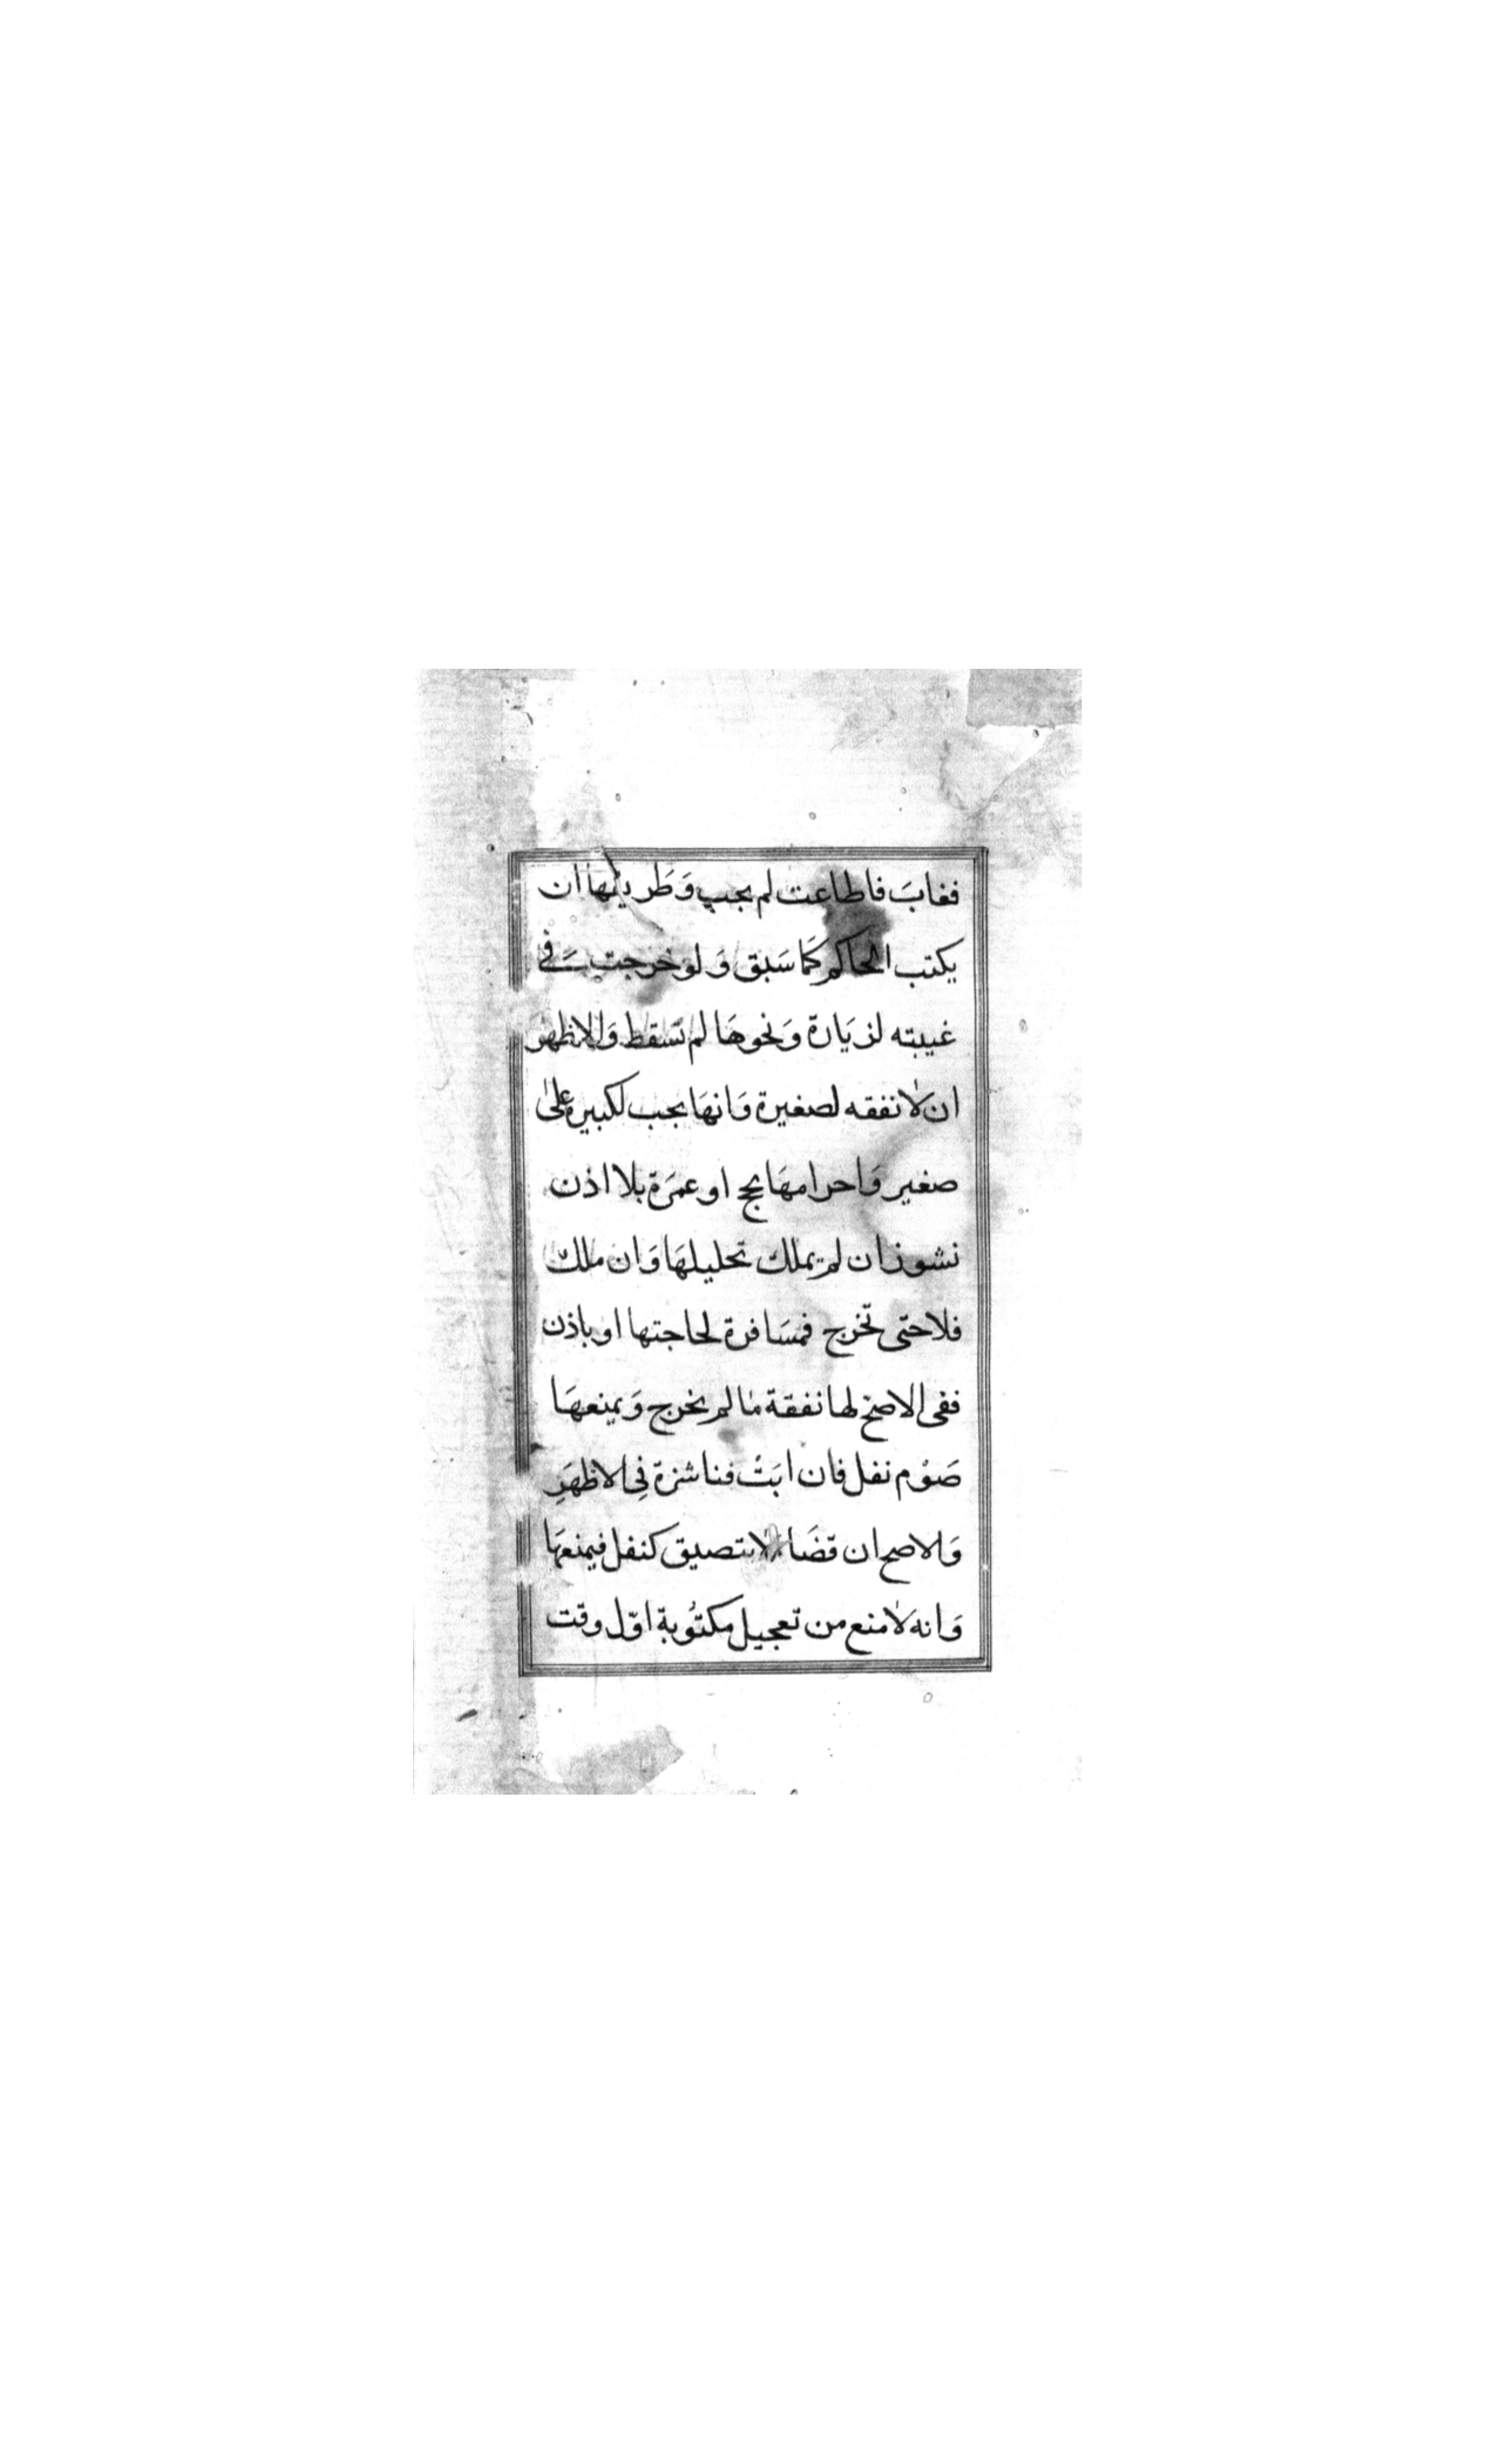 فغابَ فاطاعت لم يجب وَطَريقها ان
يكتب الحاكم كَما سَبق وَ لو خرجت فى
غيبته لزيَارة وَنحوهَا لم تسقط وَالاظهر
ان لا نفقه لصغيرة وَانهَا يجب لكبيرة على
صغير وَاحرامهَا بحج او عمَرة بلا اذن
نشوز ان لم يملك تحليلهَا وَان ملك
فلا حتّى تخرج فمسَافرة لحاجتها او باذن
ففى الاصح لها نفقة ما لم يخرج وَيمنعهَا
صَوْم نفل فان ابَتْ فناشزة فِى الاظهَرِ
وَالاصح ان قضَا لا يتضيق كنفل فيمنعهَا
وَانه لا منع من تعجيل مكتُوبة اوّل وقت